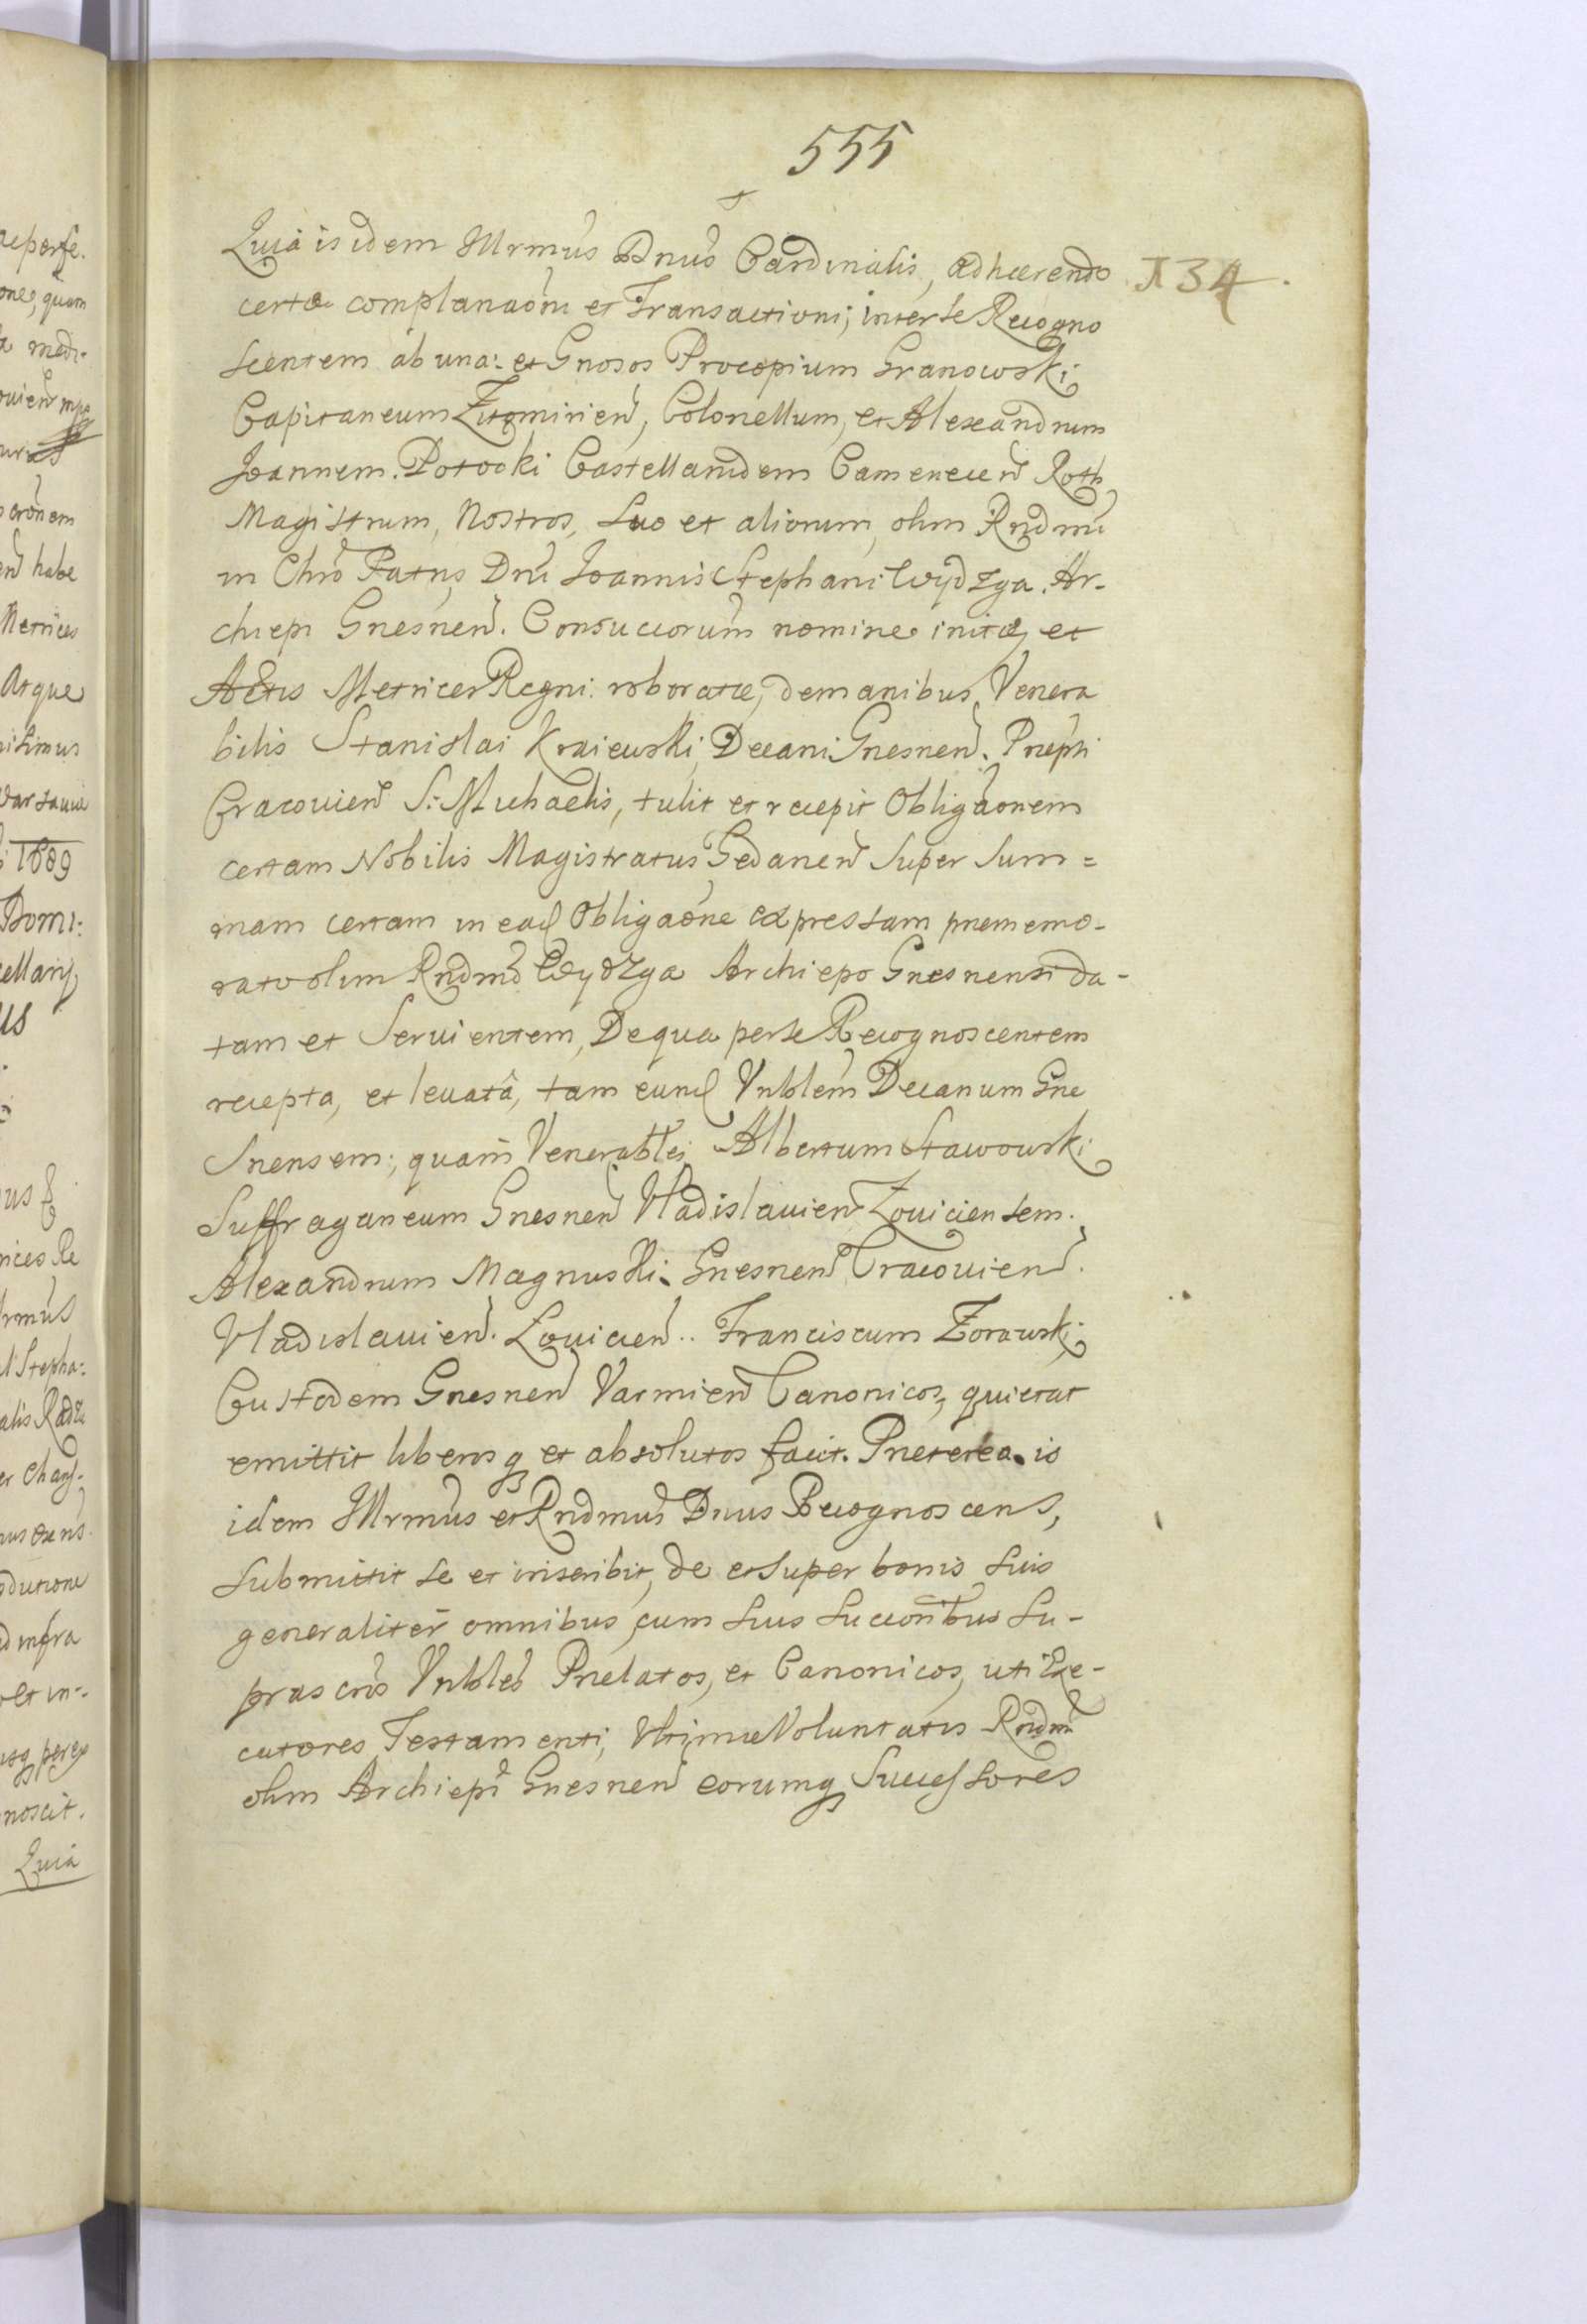 555
Quia is idem Illrmus Dnus Cardinalis, adhærendo
134
certæ complanaōni et Transactioni, inter se Recogno
scentem ab una: et Gnosos Procopium Granowski
Capitaneum Zitomirien, Colonellum, et Alexandrum
Joannem Potocki Castellanidem Camenecen Roth
Magistrum, Nostros, suo et aliorum, olim Rndmi
in Chro Patris Dni Joannis Stephani Wydzga Ar-
chiepi Gnesnen. Consuccorum nomine initæ, et
Actis Metrices Regni roboratæ, de manibus Venera
bilis Stanislai Kraiewski, Decani Gnesnen. Præpti
Cracovien S: Michaelis, tulit et recepit Obligaonem
certam Nobilis Magistratus Gedanen super Sum=
mam certam in ead Obligaone expressam præmemo-
rato olim Rndmo Wydzga Archiepo Gnesnensi da-
tam et Servientem, De qua per se Recognoscentem
recepta, et levatâ, tam eund Vnblem Decanum Gne
snensem; quam Venerables Albertum Stawowski
Suffraganeum Gnesnen Vladislavien Loviciensem.
Alexandrum Magnuski. Gnesnen Cracovien.
Vladislavien. Lovicien.. Franciscum Zorawski
Custodem Gnesnen Varmien Canonicos, quietat
emittit liberosq et absolutos facit. Præterea is
idem Illrmus et Rndmus Dnus Recognoscens,
submittit se et inscribit, de et super bonis suis
generaliter omnibus, cum suis succoribus su-
prascris Vnbles Prælatos, et Canonicos, uti Exe-
cutores Testamenti, Vltimæ Voluntatis Rndmi
olim Archiepi Gnesnen eorumq Successores